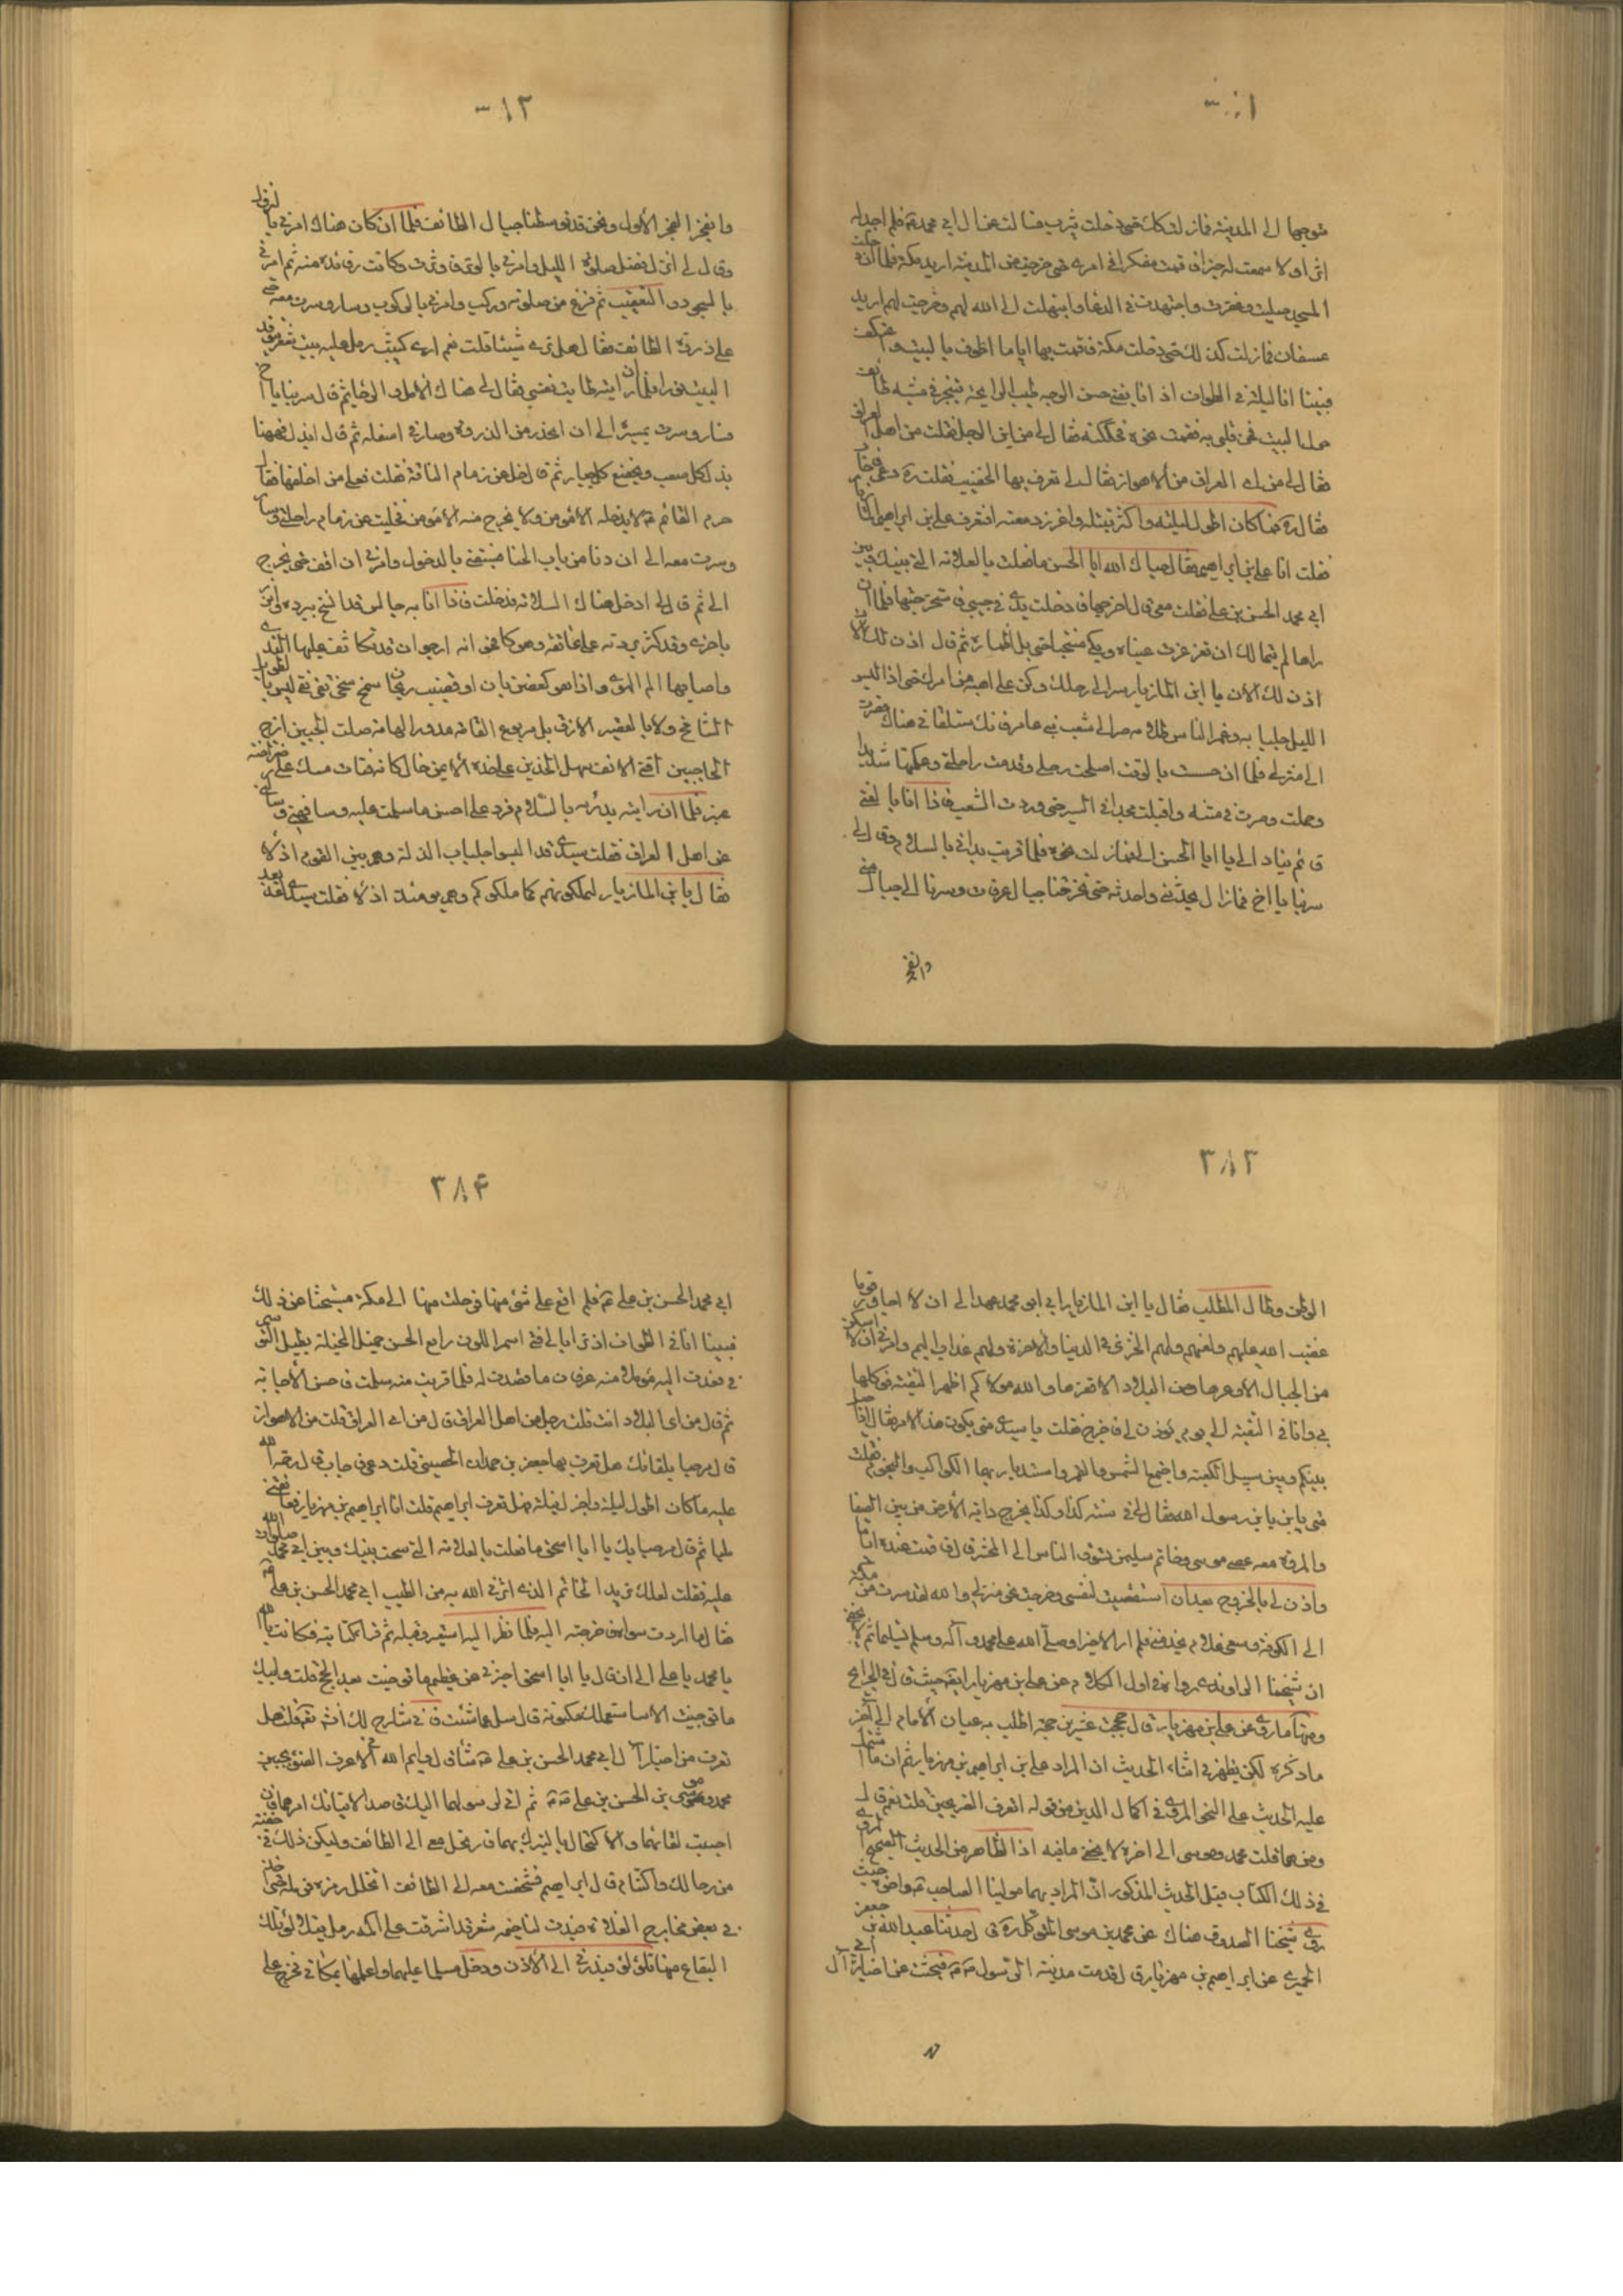 متوجها الى المدينة فما زلت كذلك حتى دخلت يثرب فسالت عن ال ابي محمد ع فلم اجد له
اثرا ولا سمعت له خبرا فاقمت مفكرا في امري حتى خرجت من المدينة اريد مكة فلما ان دخلت
المسجد صليت وعفرت واجتهدت في الدعا وابتهلت الى الله لهم وخرجت لهم اريد
عسفان فما زلت كذلك حتى دخلت مكة فاقمت بها اياما اطوف بالبيت واعتكفت
فبينا انا ليلة في الطواف اذ انا بفتى حسن الوجه طيب الرايحة يتبختر في مشيه طائف
حول البيت فحس قلبي به فقمت نحوه فحككته فقال لي من اين الرجل فقلت من اهل العراق
فقال لي من اي العراق من الاهواز فقال لي تعرف بها الخضيب فقلت ره دعي فاجاب
فقال ره فما كان اطول ليلته واكثر تبتله واغزر دمعته افتعرف علي بن ابراهيم المازيار
فقلت انا علي بن ابراهيم فقال حياك الله ابا الحسن ما فعلت بالعلامة التي بينك وبين
ابي محمد الحسن بن علي فقلت معي قال اخرجها فادخلت يدي في جيبي فاستخرجتها فلما ان
راها لم يتمالك ان تغرغرت عيناه وبكى منتحبا حتى بل اطماره ثم قال اذن لك الان
اذن لك الان يا ابن المازيار سر الى رحلك وكن على اهبة من امرك حتى اذا البس
الليل جلبابه وغمر الناس ظلامه صر الى شعب بني عامر فانك ستلقاني هناك فصرت
الى منزلي فلما ان حسست بالوقت اصلحت رحلي وقدمت راحلتي وعكمتها شديدا
وحملت وصرت في متنه واقبلت مجدا في السير حتى وردت الشعب فاذا انا بالفتى
قائم ينادي الي يا ابا الحسن الي فما زلت نحوه فلما قربت بداني بالسلام وقال لي
سر بنا يا اخ فما زال يحدثني واحدثه حتى تخرقنا جبال عرفات وسرنا الى جبال منى
وانفجر
وانفجر الفجر الاول ونحن قد توسطنا جبال الطائف فلما ان كان هناك امرني بالنزول
وقال لي انزل فصل صلوة الليل وامرني بالوتر فاوترت وكانت فائدة منه ثم امرني
بالسجود والتعقيب ثم فرغ من صلوته وركب وامرني بالركوب وسار وسرت معه حتى
علا ذروة الطائف فقال هل ترى شيئا قلت نعم ارى كثيب رمل عليه بيت شعر يتوقد
البيت نورا فلما ان رايته طابت نفسي فقال لي هناك الامل والرخا ثم قال سر بنا يا اخ
فسار وسرت بمسيره الى ان انحدر من الذروة وصار في اسفله ثم قال انزل فههنا
يذل كل صعب ويخضع كل جبار ثم قال خل عن زمام الناقة فقلت فعلى من اخلفها فقال
حرم القائم ع لا يدخله الا مؤمن ولا يخرج منه الا مؤمن فخليت عن زمام راحلتي وسار
وسرت معه الى ان دنا من باب الخبا فسبقني بالدخول وامرني ان اقف حتى يخرج
الي ثم قال لي ادخل هناك السلامة فدخلت فاذا انا به جالس قد اتشح ببردة واتزر
باخرى وقد كسر بردته على عاتقه وهو كاقحوانة ارجوان قد تكاثف عليها الندى
واصابها الم الهوى واذا هو كغصن بان او قضيب ريحان سمح سخي تقي نقي ليس بالطويل
الشامخ ولا بالقصير اللازق بل مربوع القامة مدور الهامة صلت الجبين ازج
الحاجبين اقنى الانف سهل الخدين على خده الايمن خال كانه فتات مسك على رضراضة
عنبر فلما ان رايته بدرته بالسلام فرد علي احسن ما سلمت عليه وشافهني وسالني
عن اهل العراق فقلت سيدي قد البسوا جلباب الذلة وهم بين القوم اذلاء
فقال يا بن المازيار لتملكونهم كما ملكوكم وهم يومئذ اذلاء فقلت سيدي لقد بعد
٣٨٣
الوطن وطال المطلب فقال يا ابن المازيار ابي ابو محمد عهد الي ان لا اجاور قوما
غضب الله عليهم ولعنهم ولهم الخزي في الدنيا والاخرة ولهم عذاب اليم وامرني ان لا اسكن
من الجبال الا وعرها ومن البلاد الا قفرها والله مولاكم اظهر التقية فوكلها
بي وانا في التقية الى يوم يؤذن لي فاخرج فقلت يا سيدي متى يكون هذا الامر فقال اذا حيل
بينكم وبين سبيل الكعبة واجتمع الشمس والقمر واستدار بهما الكواكب والنجوم فقلت
متى يا بن يا بن رسول الله فقال لي في سنة كذا وكذا يخرج دابة الارض من بين الصفا
والمروة معه عصى موسى وخاتم سليمن يسوق الناس الى المحشر قال فاقمت عنده اياما
واذن لي بالخروج بعد ان استقصيت لنفسي وخرجت نحو منزلي والله لقد سرت من مكة
الى الكوفة ومعي غلام يخدمني فلم ار الا خيرا وصلى الله على محمد وآله وسلم تسليما ثم لا يخفى
ان شيخنا الراوندي رواه في اول الكلام عن علي بن مهزيار ايضا حيث قال في الخرايج
ومنها ما روي عن علي بن مهزيار قال حججت عشرين حجة اطلب به عيان الامام الى آخر
ما ذكره لكن يظهر في اثناء الحديث ان المراد علي بن ابراهيم بن مهزيار ثم ان ما اشتمل
عليه الحديث على النحو المروي في اكمال الدين من قوله اتعرف الضريحين قلت نعم قال
ومن هما قلت محمد وموسى الى اخره لا يخفى ما فيه اذ الظاهر من الحديث الصحيح المروي
في ذلك الكتاب قبل الحديث المذكور ان المراد بهما مولينا الصاحب ع واخوه حيث
روى شيخنا الصدوق هناك عن محمد بن موسى المتوكل ره قال حدثنا عبد الله بن جعفر
الحميري عن ابراهيم بن مهزيار قال قدمت مدينة الرسول ص فبحثت عن اخبار آل ابي
٣٨۴
ابي محمد الحسن بن علي ع فلم اقع على شئ منها فرحلت منها الى مكة مستبحثا عن ذلك
فبينا انا في الطواف اذ تراءى لي فتى اسمر اللون رايع الحسن جميل المخيلة يطيل التوسم
في فعدت اليه مؤملا منه عرفان ما قصدت له فلما قربت منه سلمت فاحسن الاجابة
ثم قال من اي البلاد انت قلت رجل من اهل العراق قال من اي العراق قلت من الاهواز
قال مرحبا بلقائك هل تعرف بها جعفر بن حمدان الحصيني قلت دعي فاجاب قال رحمة الله
عليه ما كان اطول ليله واجزل نيله فهل تعرف ابراهيم قلت انا ابراهيم بن مهزيار فعانقني
مليا ثم قال مرحبا بك يا ابا اسحق ما فعلت بالعلامة التي وشجت بينك وبين ابي محمد صلوات الله
عليه فقلت لعلك تريد الخاتم الذي اثرني الله به من الطيب ابي محمد الحسن بن علي ع
فقال ما اردت سواه فاخرجته اليه فلما نظر اليه استعبر وقبله ثم قرا كتابته فكانت يا الله
يا محمد يا علي الى ان قال يا ابا اسحق اخبرني عن عظيم ما توخيت بعد الحج قلت وابيك
ما توخيت الا ما ساستعلمك مكنونه قال سل عما شئت فاني شارح لك انشاء الله قلت هل
تعرف من اخبار آل ابي محمد الحسن بن علي ع شيئا قال وايم الله اني لاعرف الضوء بجبين
محمد وموسى بني الحسن بن علي ع ثم اني لرسولهما اليك قاصدا لانبائك امرهما فان
احببت لقائهما والاكتحال بالتبرك بهما فارتحل معي الى الطائف وليكن ذلك في خفية
من رجالك واكتتام قال ابراهيم فشخصت معه الى الطائف اتخلل رملة فرملة حتى اخذ
في بعض مخارج الفلاة فبدت لنا خيمة شعر قد اشرفت على اكمة رمل يتلالؤ تلك
البقاع منها تلالؤا فبدرني الى الاذن ودخل مسلما عليهما واعلمهما بمكاني فخرج علي